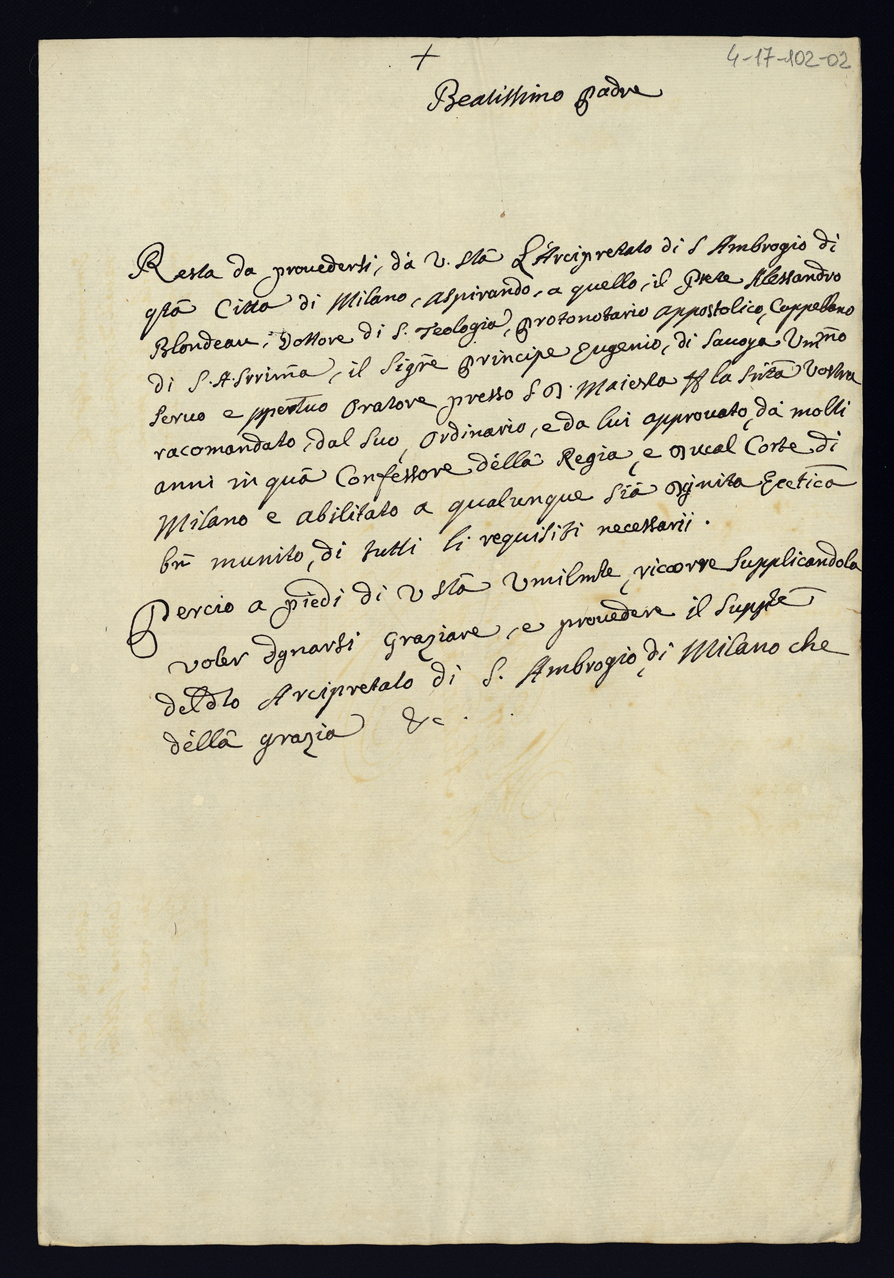 +
4-17-102-02
Beatissimo Padre
Resta da provedersi, dà V. Stã L'Arcipretato di S Ambrogio di
qstã Citta di Milano, aspirando, a quello, il Prete Alessandro
Blondeau, Dottore di S. Teologia, Protonotario appostolico, Cappellano
di S. A. Srrima, il Sigre Principe Eugenio, di Savoya Ummo
servo e ppetuo Oratore presso S D. Maiesta la Sntã Vostra
racomandato, dal suo, Ordinario, e da lui approvato, dà molti
anni in quà Confessore déllà Regia, e Ducal Corte di
Milano e abilitato a qualunque siã Dignita Ecctica
bn munito, di tutti li requisiti necessarii.
Percio a piedi di V Stã Umilmte, ricorre supplicandola
voler dgnarsi Graziare, e provedere il suppte
deldto Arcipretato di S. Ambrogio, di Milano che
déllà grazia &c.